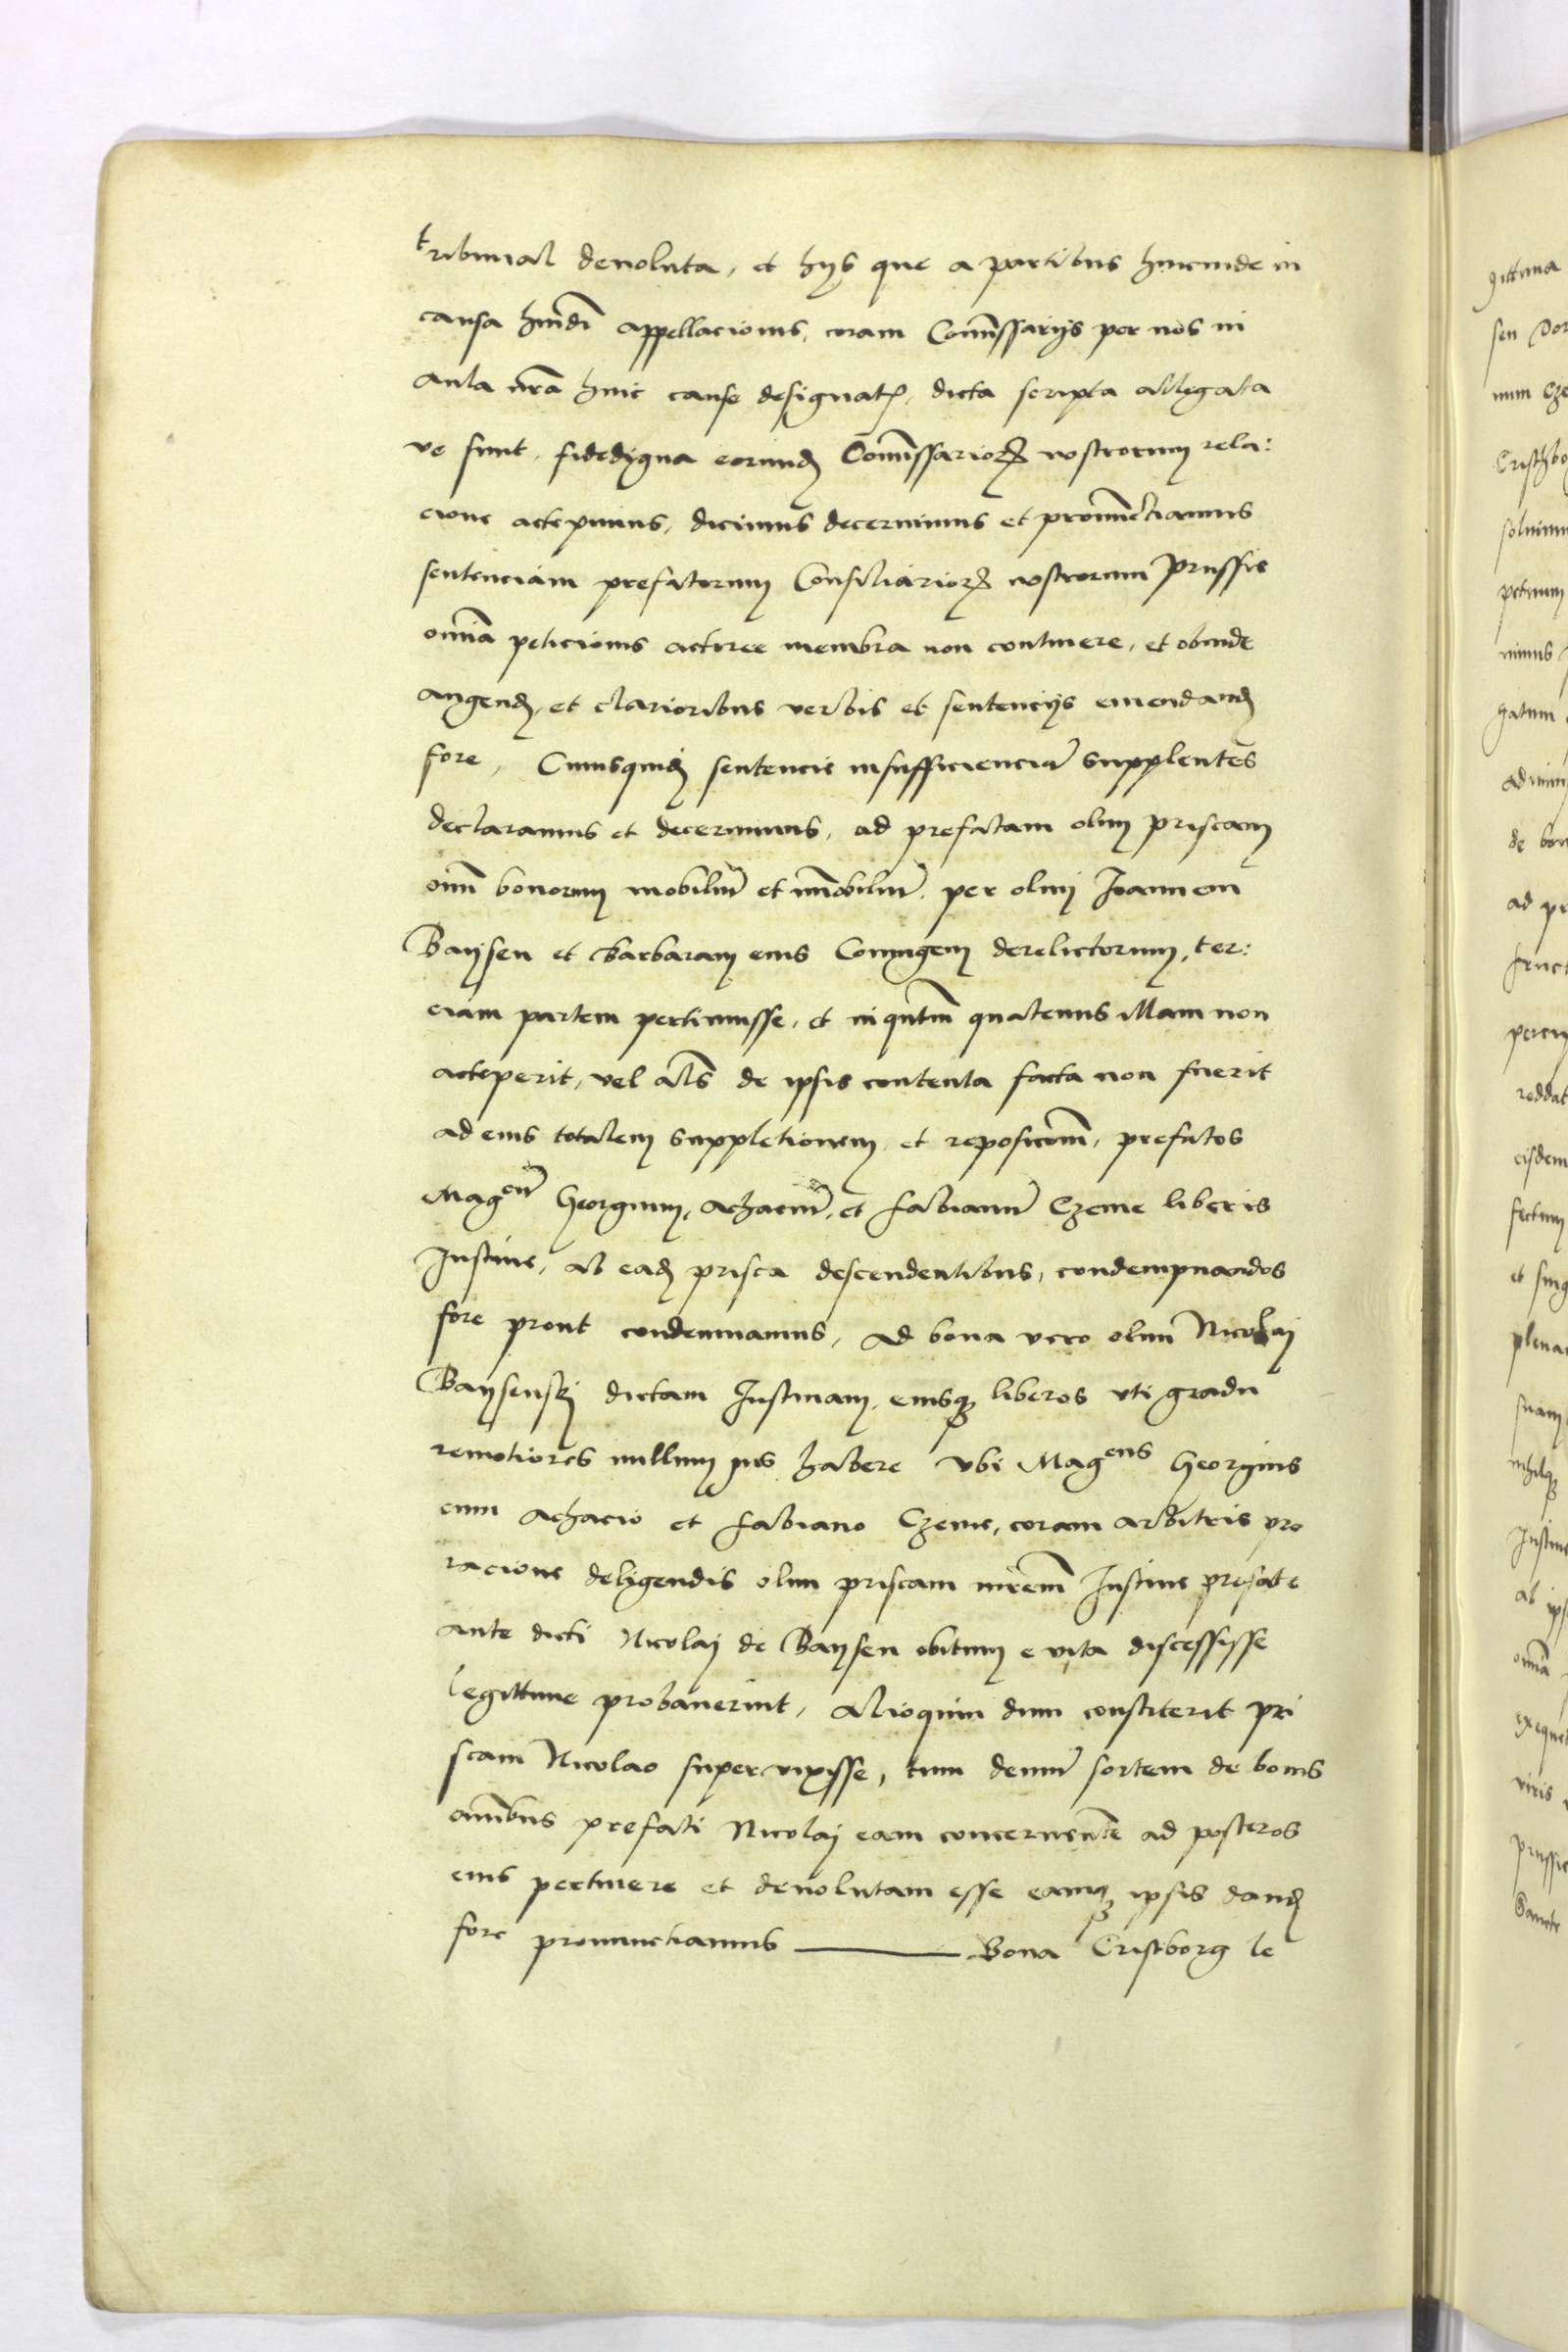 tribunal devoluta, et hijs que a partibus hincinde in
causa hmoi appellacionis, coram Comissarijs per nos in
aula nra huic cause designat, dicta scripta allegata
ve sunt, fidedigna eorund Comissarior nostrorum rela:
cione accepimus, dicimus decernimus et pronuntiamus
sentenciam prefatorum Consiliarior nostrorum Prussie
omnia peticionis actoree membra non continere, et obinde
augend, et clarioribus verbis et sentencijs emendand
fore, Cuiusquid sentencie insufficienciã supplentes
declaramus et decernimus, ad prefatam olim priscam
oim bonorum mobiliũ et imobiliũ, per olim Joannem
Baysen et Barbaram eius Coniugem derelictorum, ter:
ciam partem pertinuisse, et inqntum quatenus illam non
acceperit, vel als de ipsis contenta facta non fuerit
ad eius totalem suppletionem et reposicõem, prefatos
Mag͠cũ Georgium, Achaciũ, et Fabianũ Czeme liberis
Justine, ab ead prisca descendentibus, condempnandos
fore prout condemnamus, Ad bona vero olim Nicolaj
Baysenskj dictam Justinam, eiusq liberos uti gradu
remotiores nullum ius habere Vbi Mag͠cus Georgius
cum Achacio et Fabiano Czeme, coram arbitris pro
racione deligendis olim priscam mrem Justine prefate
ante dicti Nicolaj de Baysen obitum e vita discessisse
legittime probaverint, Alioquin dum constiterit pri
scam Nicolao supervixisse, tum demũ sortem de bonis
omnibus prefati Nicolaj eam concernentẽ ad posteros
eius pertinere et devolutam esse eamq ipsis dand
fore pronunctiamus ——— Bona Cristborg le